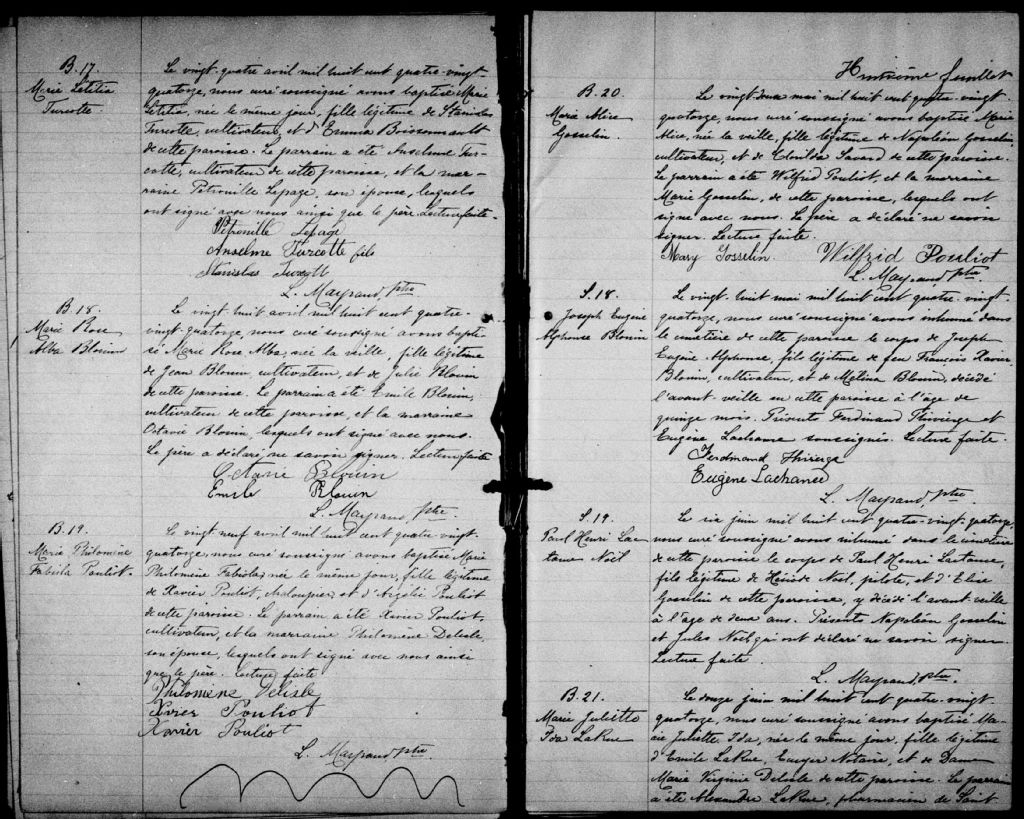 B.17.
Marie Létitia
Turcotte
Le vingt-quatre avril mil huit cent quatre-vingt-
quatorze, nous curé soussigné avons baptisé Marie
Létitia, née le même jour, fille légitime de Stanislas
Turcotte, cultivateur, et d'Emma Boissonnault
de cette paroisse. Le parrain a été Anselme Tur-
cotte, cultivateur de cette paroisse, et la mar-
raine Pétronille Lepage, son épouse, lesquels
ont signé avec nous ainsi que le père. Lecture faite.
Pétronille Lepage
Anselme Turcotte fils
Stanislas Turcott
L. Mayrand ptre
B.18.
Marie Rose
Alba Blouin
Le vingt-huit avril mil huit cent quatre-
vingt-quatorze, nous curé soussigné avons bapti-
sé Marie Rose Alba, née la veille, fille légitime
de Jean Blouin, cultivateur, et de Julie Blouin
de cette paroisse. Le parrain a été Emile Blouin,
cultivateur de cette paroisse, et la marraine
Octavie Blouin, lesquels ont signé avec nous.
Le père a déclaré ne savoir signer. Lecture faite
Octavie Blouin
Emile Blouin
L. Mayrand, ptre
B.19.
Marie Philomène
Fabiola Pouliot.
Le vingt-neuf avril mil huit cent quatre-vingt-
quatorze, nous curé soussigné avons baptisé Marie
Philomène Fabiola, née le même jour, fille légitime
de Xavier Pouliot, navigateur, et d'Azélie Pouliot
de cette paroisse. Le parrain a été Xavier Pouliot,
cultivateur, et la marraine Philomène Delisle,
son épouse, lesquels ont signé avec nous ainsi
que le père. Lecture faite
Philomène Delisle
Xavier Pouliot
Xavier Pouliot
L. Mayrand ptre
Huitième feuillet
B.20.
Marie Alice
Gosselin.
Le vingt-deux mai mil huit cent quatre-vingt-
quatorze, nous curé soussigné avons baptisé Marie
Alice, née la veille, fille légitime de Napoléon Gosselin,
cultivateur, et de Clorilda Savard de cette paroisse.
Le parrain a été Wilfrid Pouliot, et la marraine
Marie Gosselin, de cette paroisse, lesquels ont
signé avec nous. Le père a déclaré ne savoir
signer. Lecture faite.
Mary Gosselin Wilfrid Pouliot
L. Mayrand, ptre
S.18.
Joseph Eugène
Alphonse Blouin
Le vingt-huit mai mil huit cent quatre-vingt-
quatorze, nous curé soussigné avons inhumé dans
le cimetière de cette paroisse le corps de Joseph
Eugène Alphonse, fils légitime de feu François Xavier
Blouin, cultivateur, et de Mélina Blouin, décédé
l'avant-veille en cette paroisse à l'âge de
quinze mois. Présents Ferdinand Thivierge et
Eugène Lachance soussignés. Lecture faite.
Ferdinand Thivierge
Eugène Lachance
L. Mayrand, ptre
S.19.
Paul Henri Lac-
tance Noël
Le six juin mil huit cent quatre-vingt-quatorze,
nous curé soussigné avons inhumé dans le cimetière
de cette paroisse le corps de Paul Henri Lactance,
fils légitime de Noël, pilote, et d'Elise
Gosselin de cette paroisse, y décédé l'avant-veille
à l'âge de deux ans. Présents Napoléon Gosselin
et Jules Noël qui ont déclaré ne savoir signer.
Lecture faite.
L. Mayrand, ptre
B.21.
Marie Juliette
Ida LaRue
Le douze juin mil huit cent quatre-vingt-
quatorze, nous curé soussigné avons baptisé Ma-
rie Juliette Ida, née le même jour, fille légitime
d'Emile LaRue, Ecuyer Notaire, et de Dame
Marie Virginie Delisle de cette paroisse. Le parrain
a été Alexandre LaRue, pharmacien de Saint